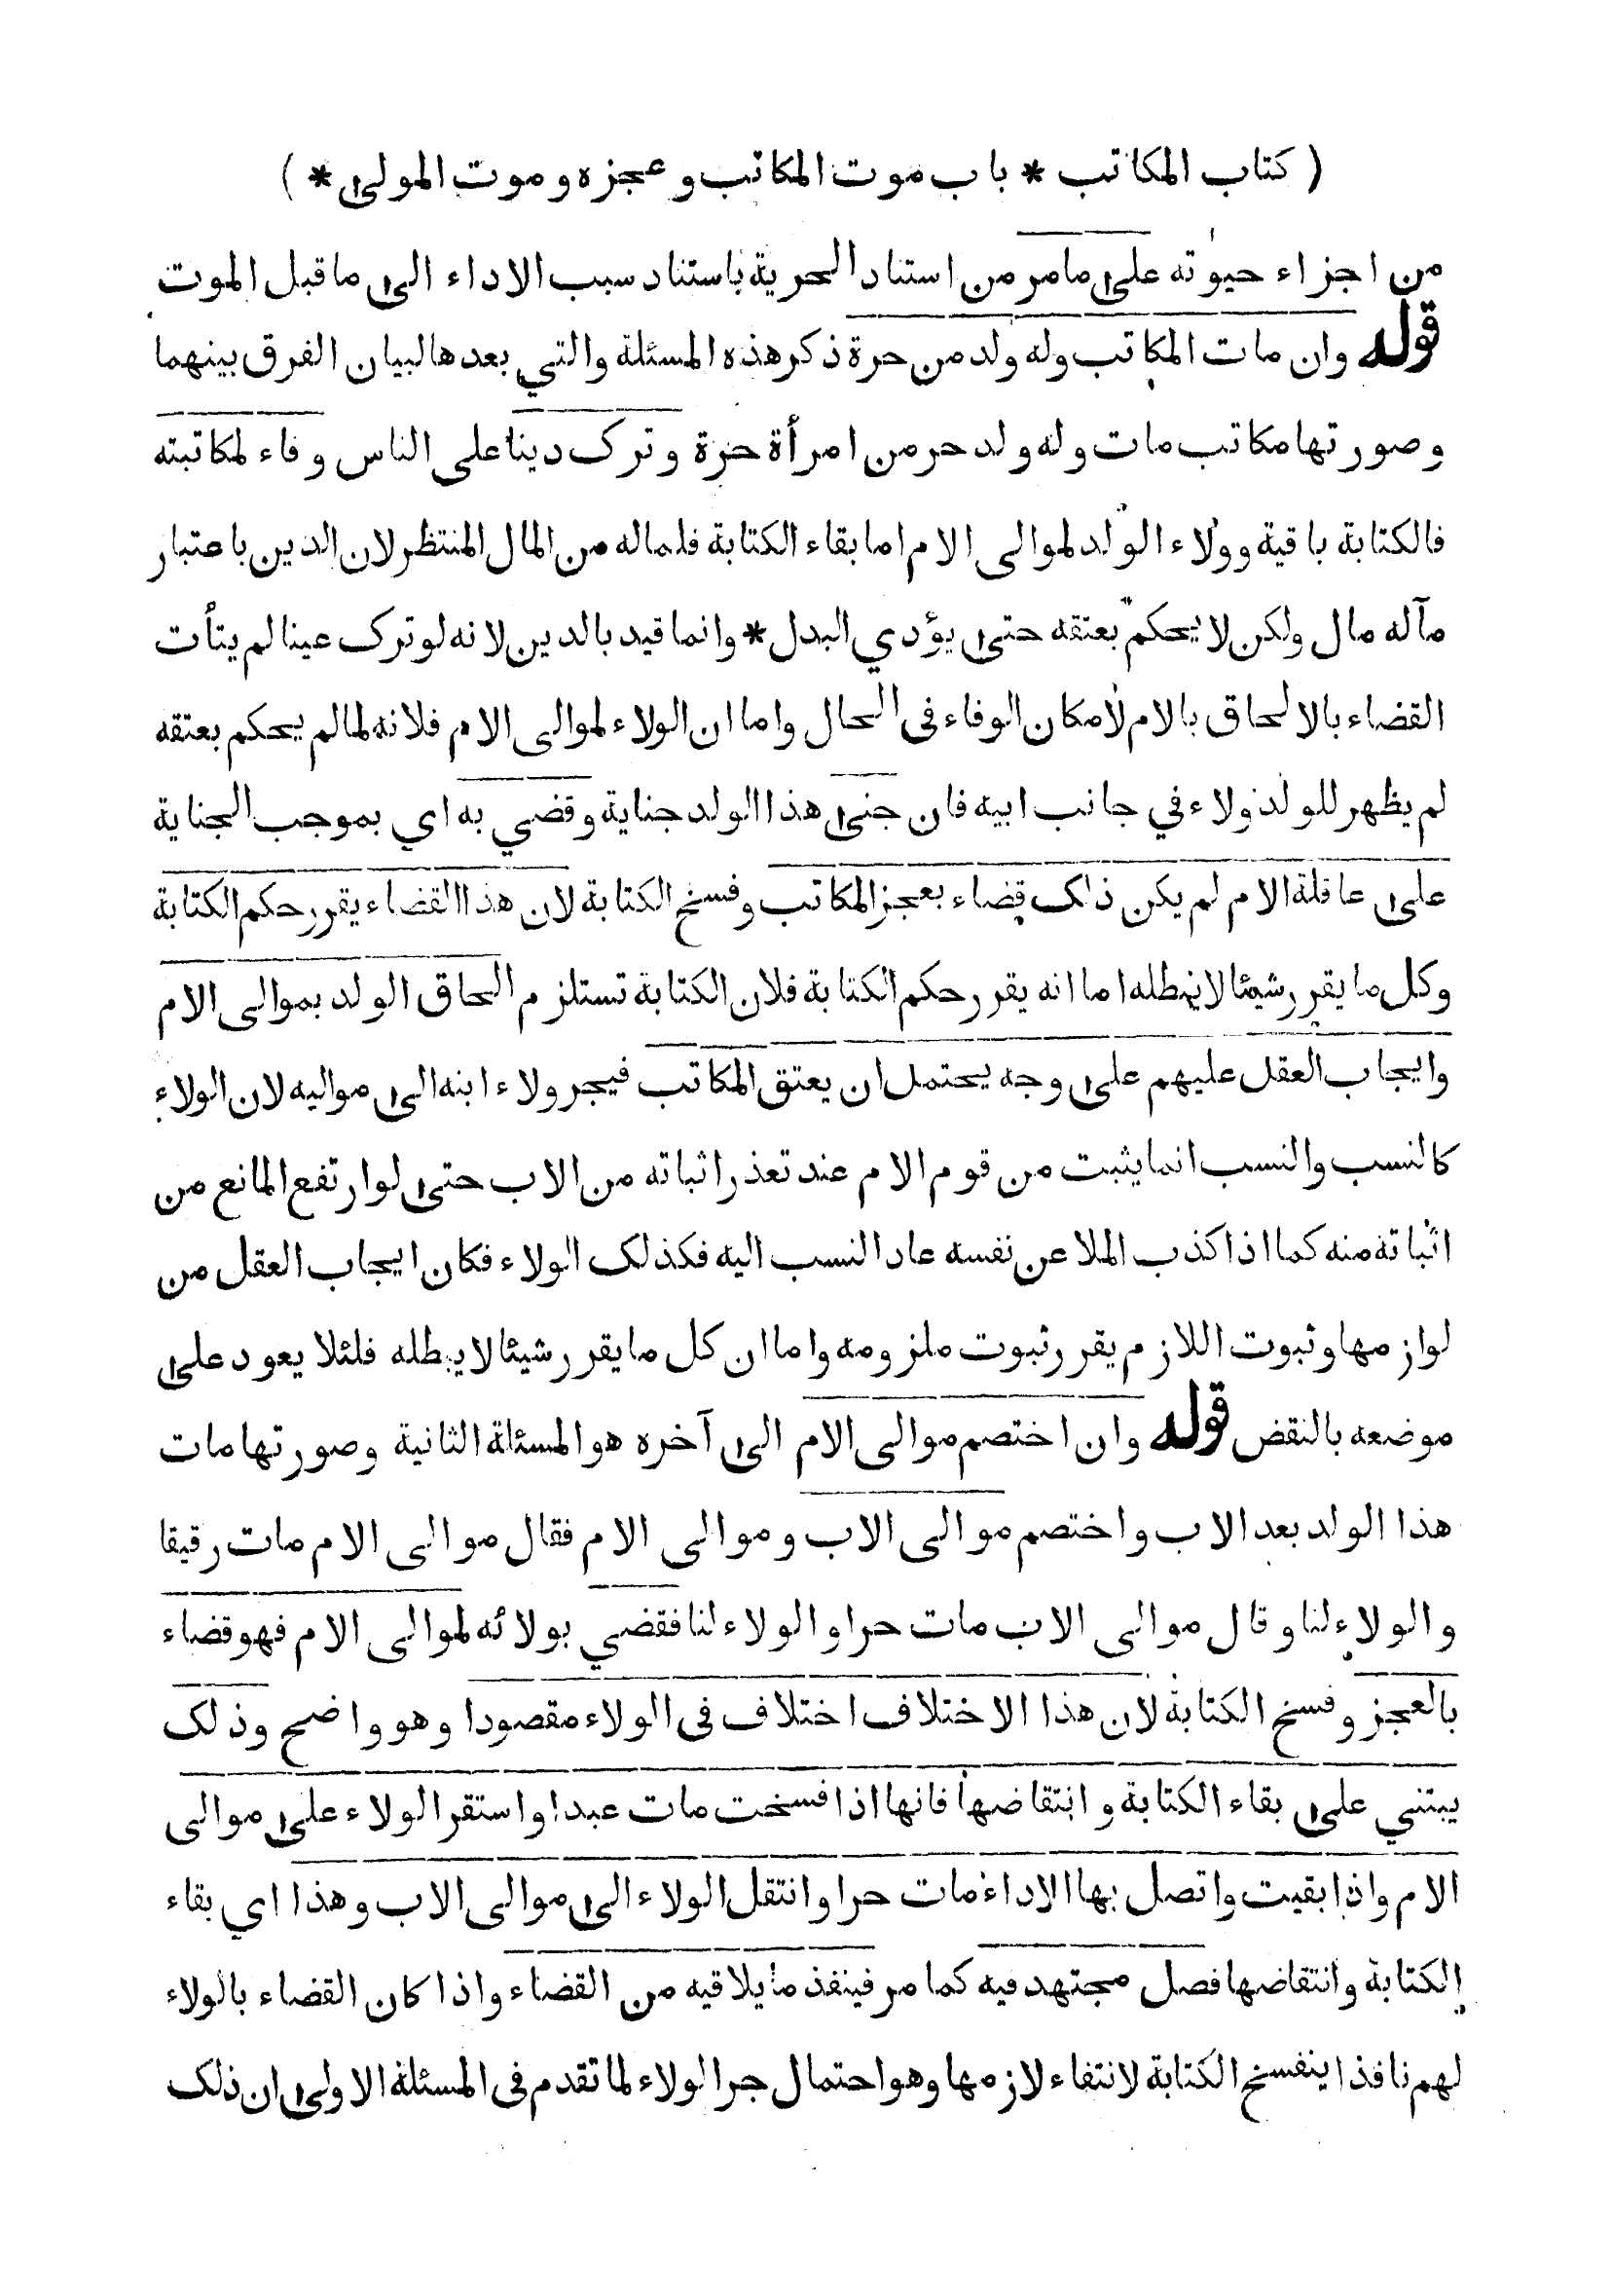 ( كتاب المكاتب * باب موت المكاتب و عجزه و موت المولى * )
من اجزاء حيوته على مامر من استناد الحرية باستناد سبب الاداء الى ما قبل الموت
قوله وان مات المكاتب وله ولد من حرة ذكر هذه المسئلة والتي بعدها لبيان الفرق بينهما
وصورتها مكاتب مات وله ولد حر من امرأة حرة وترك دينا على الناس وفاء لمكاتبته
فالكتابة باقية وولاء الولد لموالى الام اما بقاء الكتابة فلما له من المال المنتظر لان الدين باعتبار
مآله مال ولكن لا يحكم بعتقه حتى يؤدي البدل * وانما قيد بالدين لانه لو ترك عينا لم يتأت
القضاء بالالحاق بالام لامكان الوفاء فى الحال واما ان الولاء لموالى الام فلانه لما لم يحكم بعتقه
لم يظهر للولد ولاء في جانب ابيه فان جنى هذا الولد جناية وقضي به اي بموجب الجناية
على عاقلة الام لم يكن ذلك قضاء بعجز المكاتب وفسخ الكتابة لان هذا القضاء يقرر حكم الكتابة
وكل ما يقرر شيئا لا يبطله اما انه يقرر حكم الكتابة فلان الكتابة تستلزم الحاق الولد بموالى الام
وايجاب العقل عليهم على وجه يحتمل ان يعتق المكاتب فيجر ولاء ابنه الى مواليه لان الولاء
كالنسب والنسب انما يثبت من قوم الام عند تعذر اثباته من الاب حتى لو ارتفع المانع من
اثباته منه كما اذا كذب الملاعن نفسه عاد النسب اليه فكذلك الولاء فكان ايجاب العقل من
لوازمها وثبوت اللازم يقرر ثبوت ملزومه واما ان كل ما يقرر شيئا لا يبطله فلئلا يعود على
موضعه بالنقض قوله وان اختصم موالى الام الى آخره هو المسئلة الثانية وصورتها مات
هذا الولد بعد الاب واختصم موالى الاب وموالى الام فقال موالى الام مات رقيقا
والولاء لنا وقال موالى الاب مات حرا والولاء لنا فقضي بولائه لموالى الام فهو قضاء
بالعجز وفسخ الكتابة لان هذا الاختلاف اختلاف فى الولاء مقصودا وهو واضح وذلك
يبتني على بقاء الكتابة وانتقاضها فانها اذا فسخت مات عبدا واستقر الولاء على موالى
الام واذا بقيت واتصل بها الاداء مات حرا وانتقل الولاء الى موالى الاب وهذا اي بقاء
الكتابة وانتقاضها فصل مجتهد فيه كما مر فينفذ ما يلاقيه من القضاء واذا كان القضاء بالولاء
لهم نافذا ينفسخ الكتابة لانتفاء لازمها وهو احتمال جر الولاء لما تقدم فى المسئلة الاولى ان ذلك